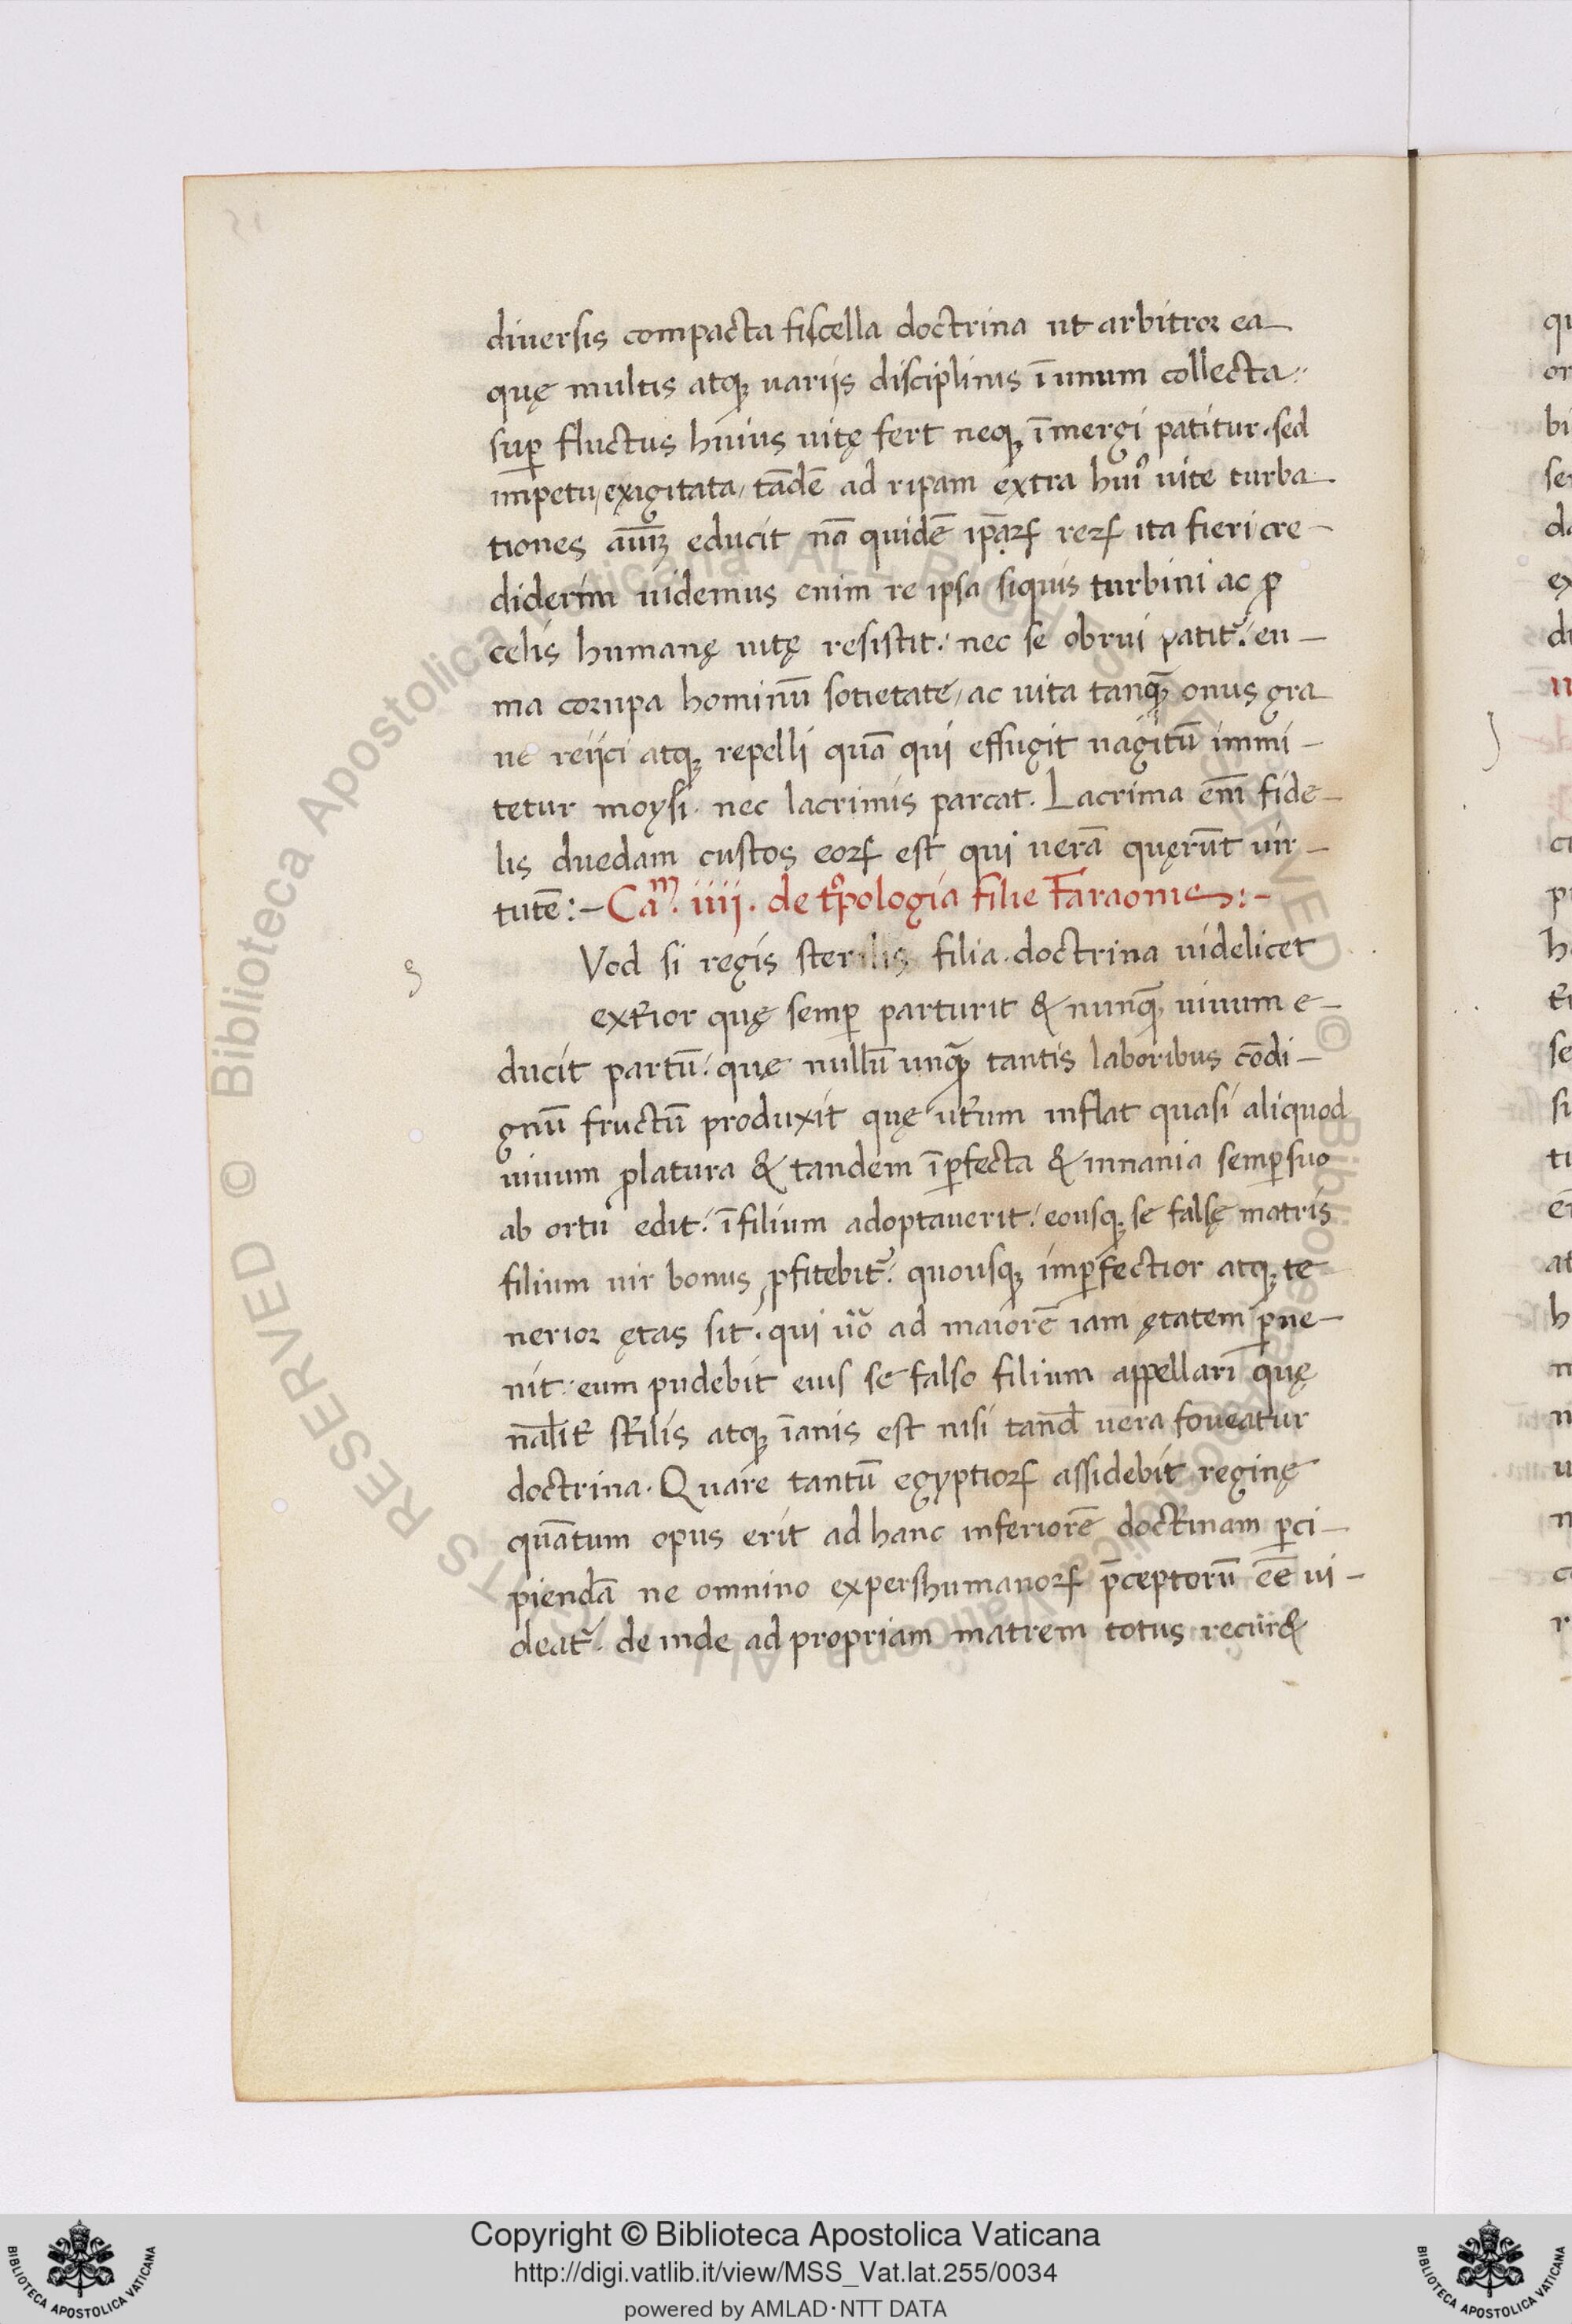 diuersis compacta fiscella doctrina ut arbitror ea
quę multis atqꝫ uariis disciplinis ī unum collecta:
suꝑ fluctus huius uitę fert neqꝫ īmergi patitur. sed
impetu, exigitata, tādē ad ripam extra huiꝰ uite turba
tiones educit nā quidē ip̄aꝝ reꝝ ita fieri cre-
diderim uidemus enim re ipsa siquis turbini ac ꝓ
celis humanę uitę resistit: nec se obrui patit᷑: eu-
ma corupa hominū sotietate, ac uita tanꝙ̄ onus gra
ue reiici atqꝫ repelli quā qui effugit uagitū immi-
tetur moysi. nec lacrimis parcat. Lacrima enī fide-
lis duedam custos eoꝝ est qui uerā quęrūt uir-
tutē:- Caᵐ. iiii. de tͦpologia filie Faraonis:-
Vod si regis sterilis filia. doctrina uidelicet
ext̄ior quę semꝑ parturit & nunꝙ̄ uiuum e-
ducit partū: quę nullū unꝙ̄ tantis laboribus cōdi-
gnū fructū produxit quę ut̄um inflat quasi aliquod
uiuum ꝓlatura & tandem īꝑfecta & innania semꝑ suo
ab ortu edit: ī filium adoptauerit: eousqꝫ se falsę matris
filium uir bonus ꝓfitebit᷑: quousqꝫ imꝑfectior atqꝫ te
nerior ętas sit. qui u̅o̅ ad maiorē iam ętatem ꝑue-
nit: eum pudebit eius se falso filium appellari quę
nal̄it̄ st̄ilis atqꝫ īanis est nisi tand̄ uera foueatur
doctrina. Quare tantū egyptioꝝ assidebit reginę
quātum opus erit ad hanc inferiorē doct̄inam ꝑci-
piendā ne omnino expers humanoꝝ p̄ceptorū eē ui-
deat᷑. de inde ad propriam matrem totus recur&
ꝯ
Copyright © Biblioteca Apostolica Vaticana
http://digi.vatlib.it/view/MSS_Vat.lat.255/0034
powered by AMLAD·NTT DATA
BIBLIOTECA APOSTOLICA VATICANA
BIBLIOTECA APOSTOLICA VATICANA